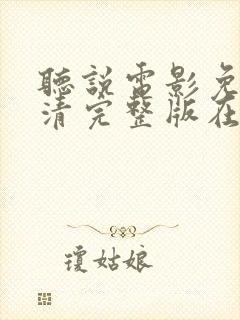 聽說電影免
清完整版在
瓊姑娘